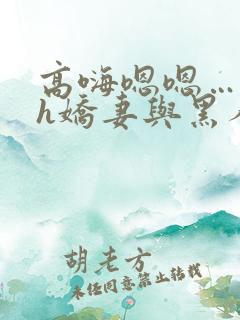 高嗨嗯嗯…
h嬌妻與黑
胡老方
未经同意禁止转载